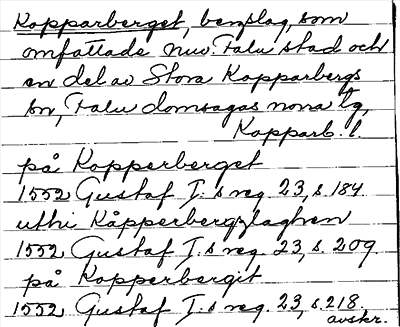 Kopparberget, bergslag, som
omfattade nuv. Falu stad och
en del av Stora Kopparbergs
sn, Falu domsagas norra tg,
Kopparb. l.
på Kopperberget
1552 Gustaf I:s reg. 23, s. 184
uthi Kåpperbergzlaghen
1552 Gustaf I:s reg. 23, s. 209
på Kopperbergit
1552 Gustaf I:s reg. 23, s. 218,
avskr.